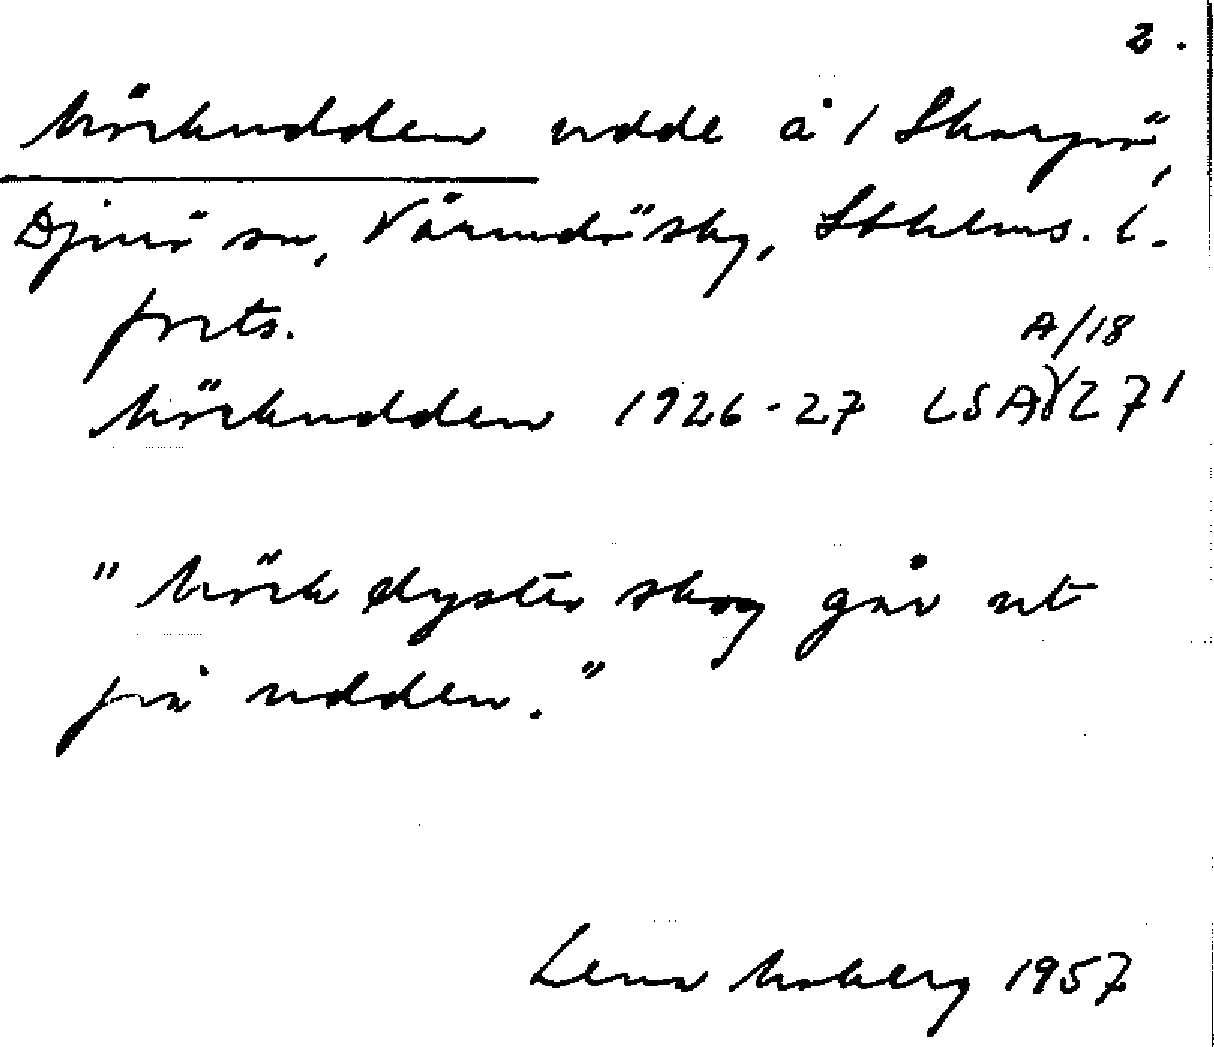 2.
Mörkudden udde å / Skarpö,
Djurö sn, Värmdö skg, Sthlms. l.
forts.
A/18
Mörkudden 1926-27 LSA Z 7¹
"Mörk dyster skog går ut
på udden."
Lena Moberg 1957